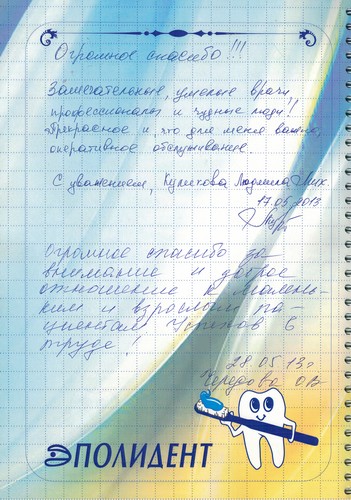 Огромное спасибо!!!
Замечательные, умелые врачи,
профессионалы и чудные люди!!
Прекрасное и, что для меня важно,
оперативное обслуживание.
С уважением, Куликова Людмила Мих.
17.05.2013
Огромное спасибо за
внимание и доброе
отношение к малень-
ким и взрослым па-
циентам. Успехов в
труде!
28.05.13г
ОВ
ЭПОЛИДЕНТ